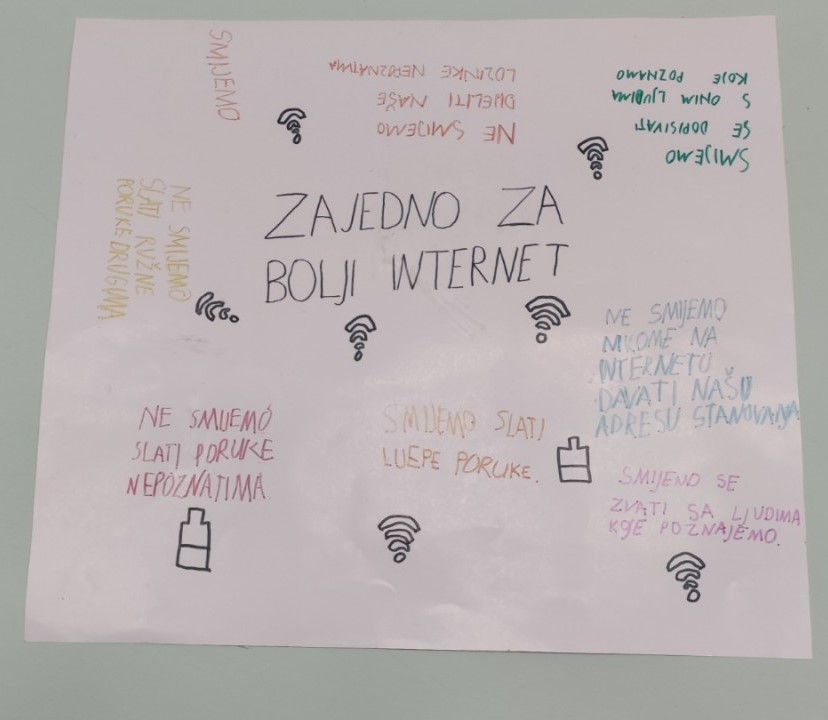 ZAJEDNO ZA
BOLJI INTERNET
SMIJEMO
NE SMIJEMO
DIJELITI NAŠE
LOZINKE NEPOZNATIMA
SMIJEMO
SE DOPISIVATI
S ONIM LJUDIMA
KOJE POZNAMO
NE SMIJEMO
SLATI RUŽNE
PORUKE DRUGIMA
NE SMIJEMO
NIKOME NA
INTERNETU
DAVATI NAŠU
ADRESU STANOVANJA
NE SMIJEMO
SLATI PORUKE
NEPOZNATIMA
SMIJEMO SLATI
LIJEPE PORUKE.
SMIJEMO SE
ZVATI SA LJUDIMA
KOJE POZNAJEMO.